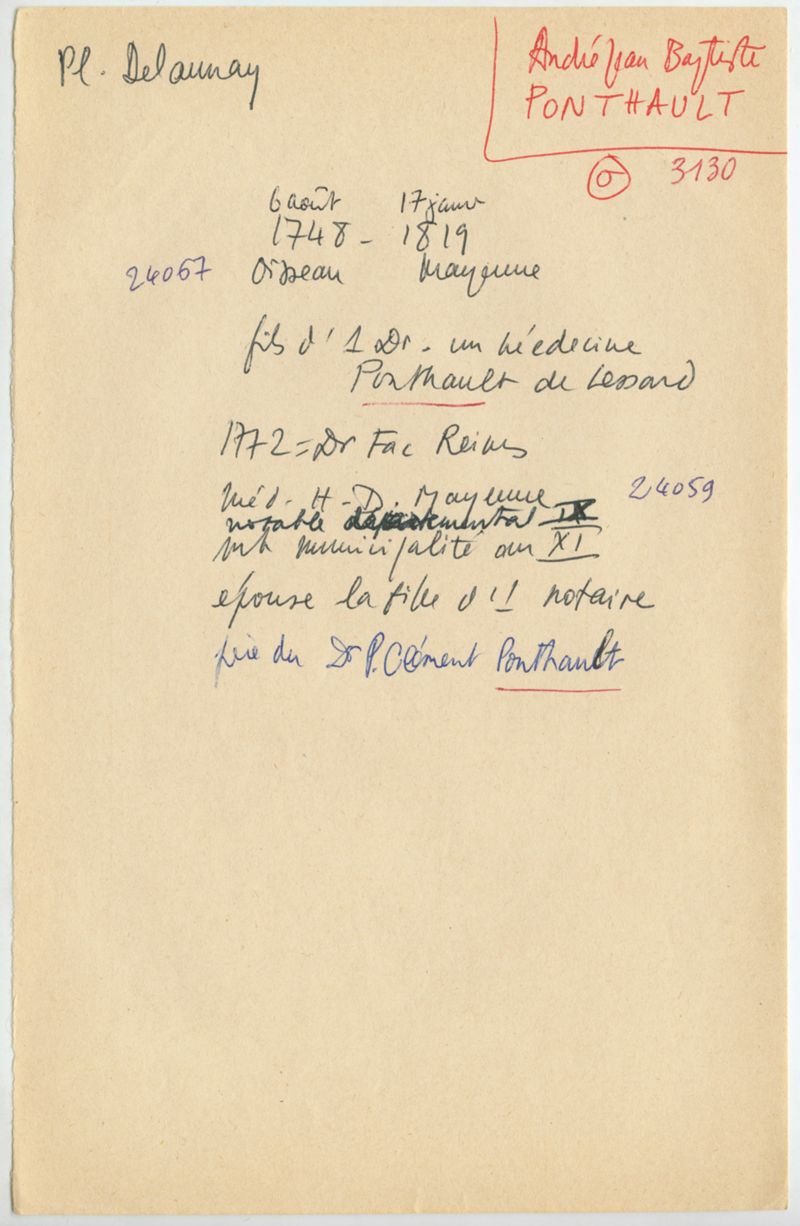 Pl. Delaunay
André Jean Baptiste
PONTHAULT
σ 3130
6 août 17 janv
1748 - 1819
24067 Oisseau Mayenne
fils d'1 Dr - en médecine
Ponthault de Lessard
1772 = Dr Fac Reims
Méd. H-D. Mayenne 24059
notable départemental IX
mb municipalité an XI
épouse la fille d'1 notaire
père du Dr P. Clément Ponthault